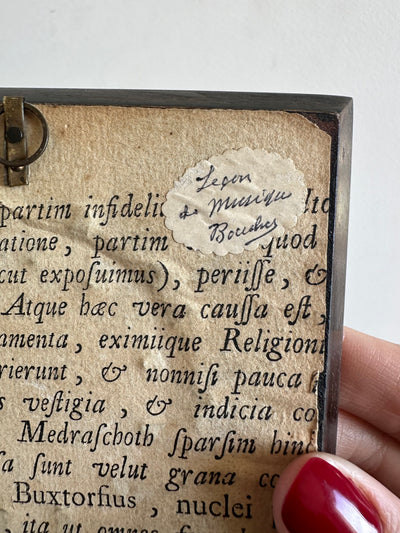 Leçon
de Musique
Boucher
partim infideli
atione, partim quod
cut expoſuimus), periiſſe, &
Atque hæc vera cauſſa eſt,
amenta, eximiique Religioni
rierunt, & nonniſi pauca
s veſtigia, & indicia co
Medraſchoth ſparſim hinc
ſa ſunt velut grana co
Buxtorfius, nuclei
, ita ut omnes